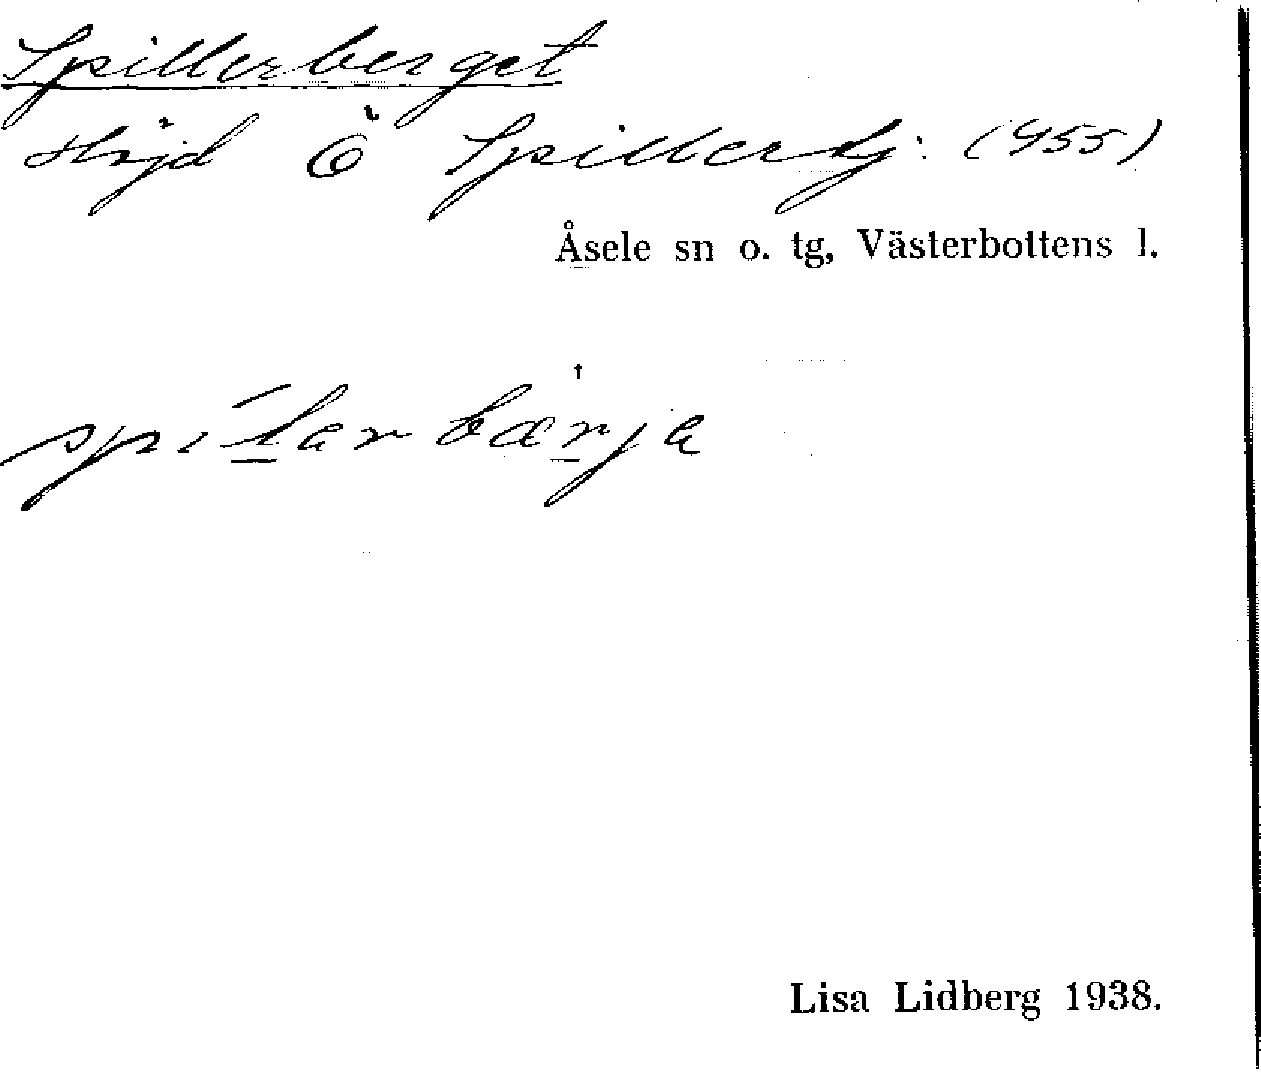 Spillerberget
Höjd Ö Spillertj: (455)
Åsele sn o. tg, Västerbottens l.
spílarbærja
Lisa Lidberg 1938.